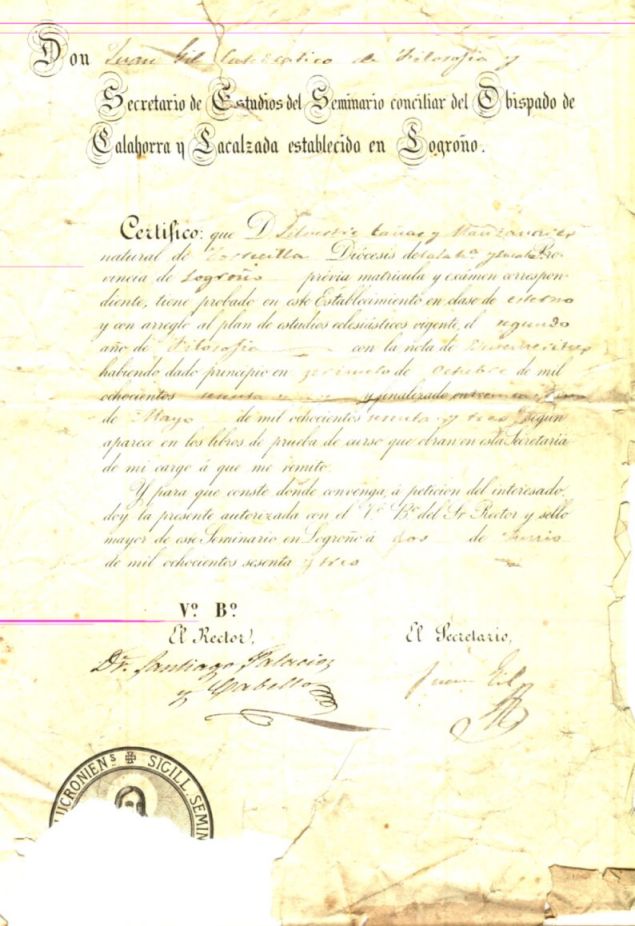 Don Juan Gil Catedrático de Filosofía y
Secretario de Estudios del Seminario conciliar del Obispado de
Calahorra y Lacalzada establecida en Logroño.
Certifico: que D. Silvestre Cañas y Manzanares
natural de Diócesis de Pro-
vincia de Logroño prévia matricula y exámen correspon-
diente, tiene probado en este Establecimiento en clase de esterno
y con arreglo al plan de estudios eclesiásticos vigente, el segundo
año de Filosofía con la nota de
habiendo dado principio en primero de Octubre de mil
ochocientos sesenta y finalizado en
de Mayo de mil ochocientos sesenta y tres, según
aparece en los libros de prueba de curso que obran en esta Secretaria
de mi cargo á que me remito.
Y para que conste donde convenga, á petición del interesado,
doy la presente autorizada con el Vº Bº del Sr Rector y sello
mayor de este Seminario en Logroño á dos de Junio
de mil ochocientos sesenta y tres
Vº Bº
El Rector,
El Secretario,
Dr. Santiago Palacios
y Cabello
Juan Gil
LUCRONIENS ✠ SIGILL. SEMIN